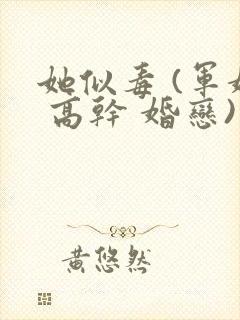 她似毒(軍
高幹 婚戀)
黃悠然